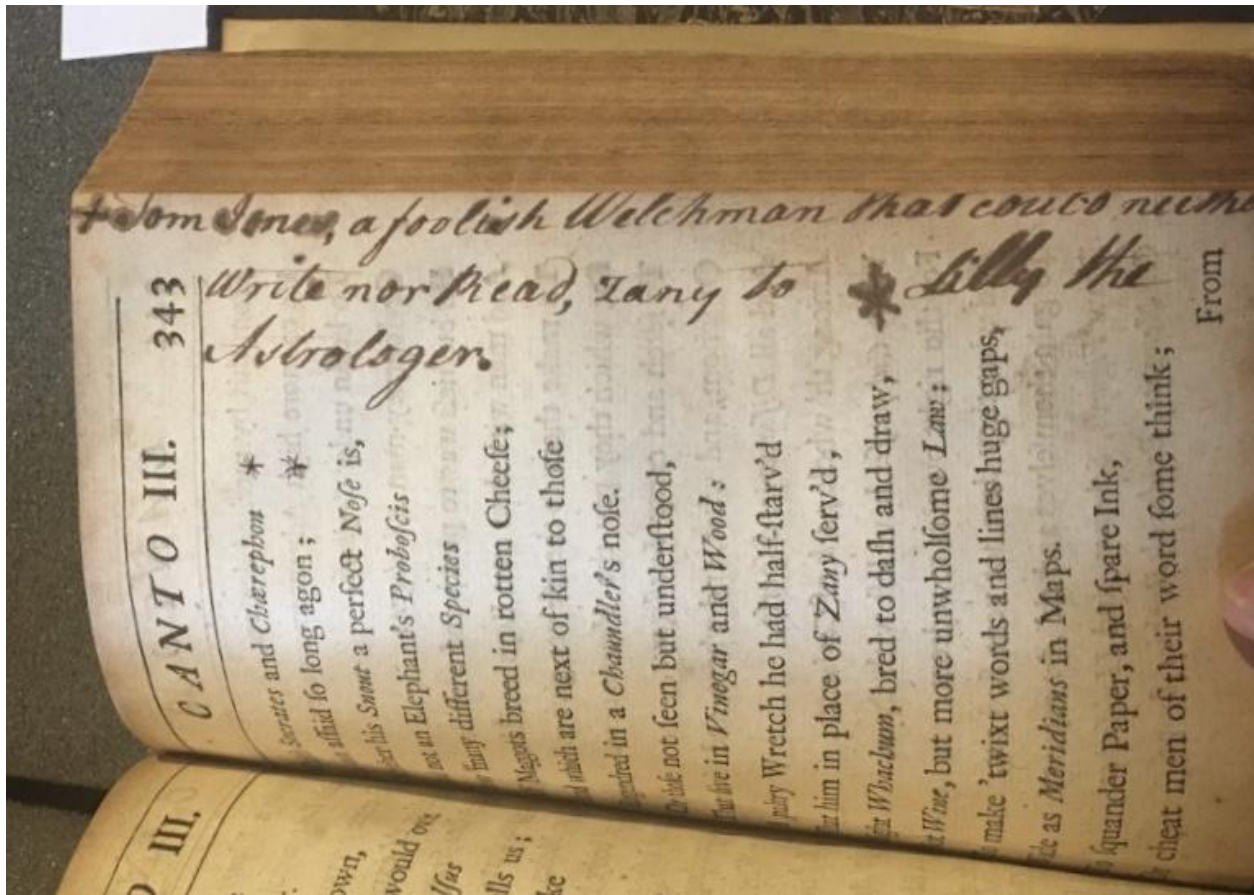 + Tom Jones, a foolish Welchman that could neither
Write nor Read, Zany to * Lilly the
Astrologer.
CANTO III. 343
Socrates and Chærephon *
affirm'd ſo long agon; *
his Snout a perfect Noſe is,
not an Elephant's Proboſcis
many different Species
Magots breed in rotten Cheeſe;
which are next of kin to thoſe
in a Chaundler's noſe.
not ſeen but underſtood,
live in Vinegar and Wood:
Wretch he had half-ſtarv'd
him in place of Zany ſerv'd;
Whachum, bred to daſh and draw,
Wine, but more unwholſome Law;
make 'twixt words and lines huge gaps,
as Meridians in Maps.
ſquander Paper, and ſpare Ink,
cheat men of their word ſome think;
From
III.
own,
would
lls us;